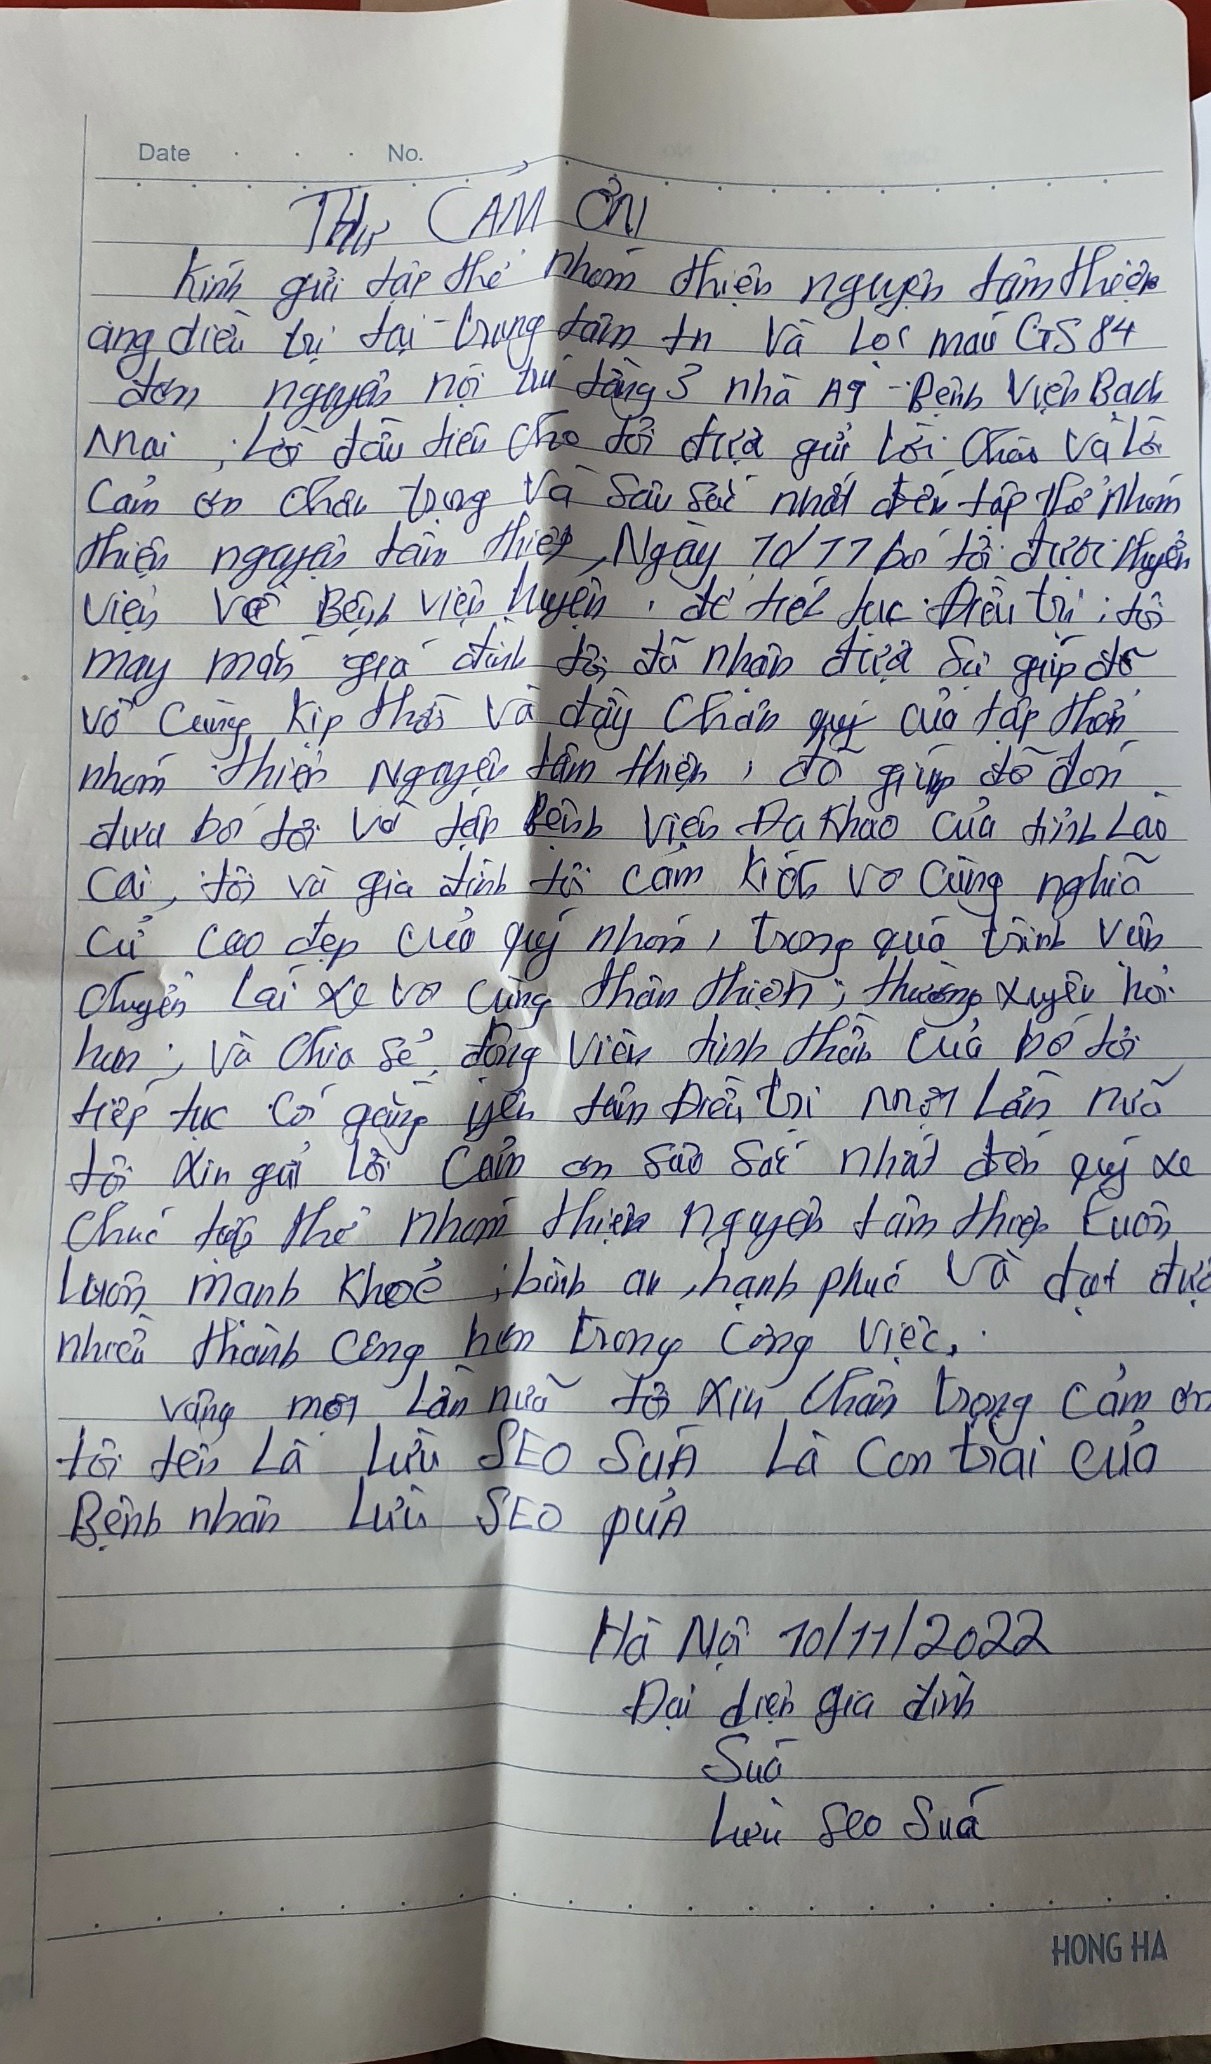 Date . . . No.
THƯ CẢM ƠN
Kính gửi tập thể nhóm thiện nguyện tâm thiện
ang điều trị tại trung tâm tn và Lọc máu GS 84
đơn nguyên nội trú tầng 3 nhà A9 - Bệnh Viện Bạch
Mai, Lời đầu tiên cho tôi được gửi Lời Chào Và Lời
Cảm ơn chân trọng và sâu sắc nhất đến tập thể nhóm
thiện nguyện tâm thiện, Ngày 10/11 bố tôi được chuyển
viện về Bệnh viện huyện, để tiếp tục Điều trị, tôi
may mắn gia đình tôi đã nhận được sự giúp đỡ
vô cùng kịp thời và đầy chân quý của tập thể
nhóm thiện Nguyện tâm thiện, đã giúp đỡ đón
đưa bố tôi về tận Bệnh viện Đa Khao của tỉnh Lào
Cai, tôi và gia đình tôi cảm kích vô cùng nghĩa
cử cao đẹp của quý nhóm, trong quá trình vận
chuyển Lái xe vô cùng thân thiện, thường xuyên hỏi
han, và chia sẻ, động viên tinh thần của bố tôi
tiếp tục cố gắng yên tâm Điều trị một Lần nữa
tôi xin gửi Lời Cảm ơn sâu sắc nhất đến quý xe
Chúc tập thể nhóm thiện nguyện tâm thiện Luôn
Luôn mạnh khoẻ, bình an, hạnh phúc và đạt được
nhiều thành công hơn trong công việc.
vâng một Lần nữa tôi xin chân trọng cảm ơn
tôi tên Là Lưu SEO SuÁ Là Con trai của
Bệnh nhân Lưu SEO PỦA
Hà Nội 10/11/2022
Đại diện gia đình
Suá
Lưu Seo Suá
HONG HA